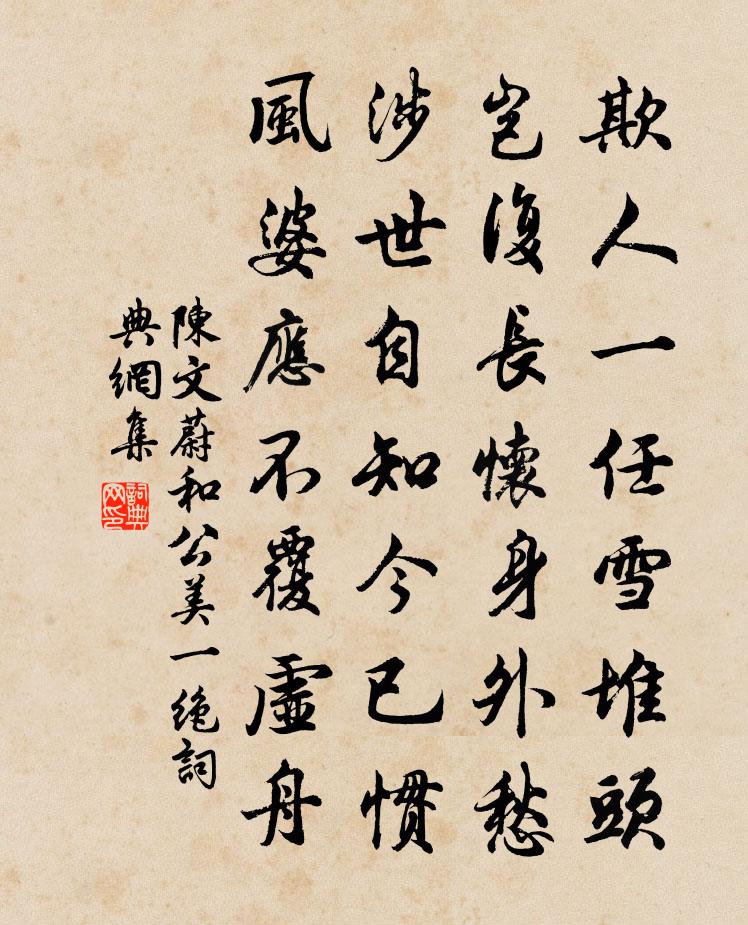 欺人一任雪堆頭
豈復長懷身外愁
涉世自知今已慣
風婆應不覆虛舟
陳文蔚和公美一絶詞
典網集
詞典
网印